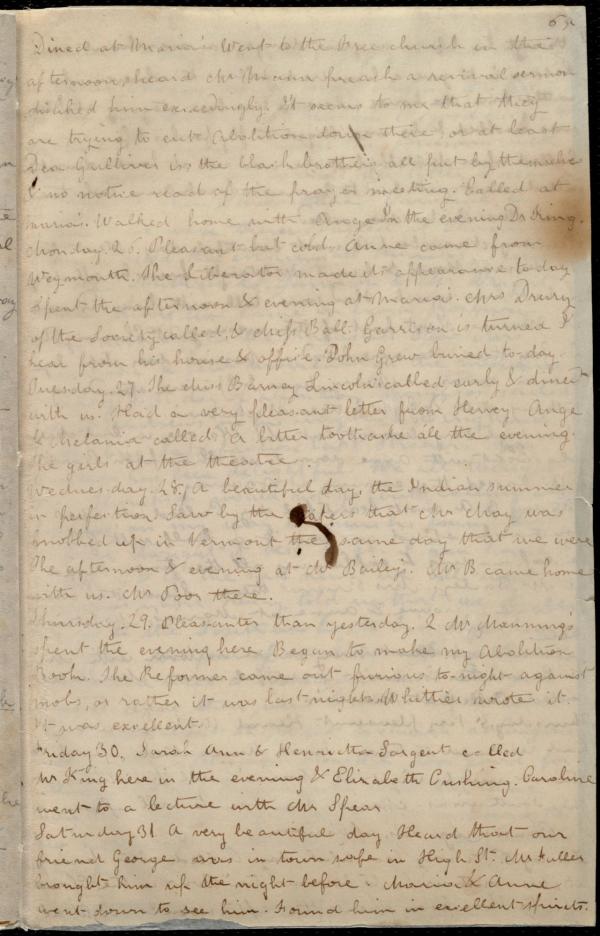 Dined at Maria's. Went to the Free church in the
afternoon, heard Mr Mann preach a revival sermon
disliked him exceedingly. It seems to me that they
are trying to cut Abolition down there or at least
Dea Gulliver is. the black brothers all put by themselves
& no notice read of the prayer meeting. Called at
maria's. Walked home with Ange In the evening Dr King.
Monday. 26. Pleasant but cold. Anne came from
Weymouth. The Liberator made its appearance to day
Spent the afternoon & evening at Maria's. Mrs Drury
of the Society called, & Miss Ball. Garrison is turned
from his house & office. John Grew buried to-day
Tuesday. 27. The Miss Barney Lincoln called early & dined
with us. Had a very pleasant letter from Henry Ange
& Melania called. A bitter toothache all the evening.
The girls at the theatre.
Wednesday. 28. A beautiful day, the Indian summer
in perfection. Saw by the papers that Mr May was
mobbed up in Vermont the same day that we were
The afternoon & evening at Mr Bailey's. Mr B came home
with us. Mr Poor there.
Thursday. 29. Pleasanter than yesterday. 2 Mr Manning's
spent the evening here Began to make my Abolition
Book. The Reformer came out furious to-night against
mobs, or rather it was last night. Whittier wrote it.
It was excellent.
Friday 30. Sarah Ann & Henrietta Sargent called
Mr King here in the evening & Elizabeth Cushing. Caroline
went to a lecture with Mr Spear
Saturday 31 A very beautiful day Heard that our
friend George was in town safe in High St. Mr Fuller
brought him up the night before. Maria & Anne
went down to see him. Found him in excellent spirits.